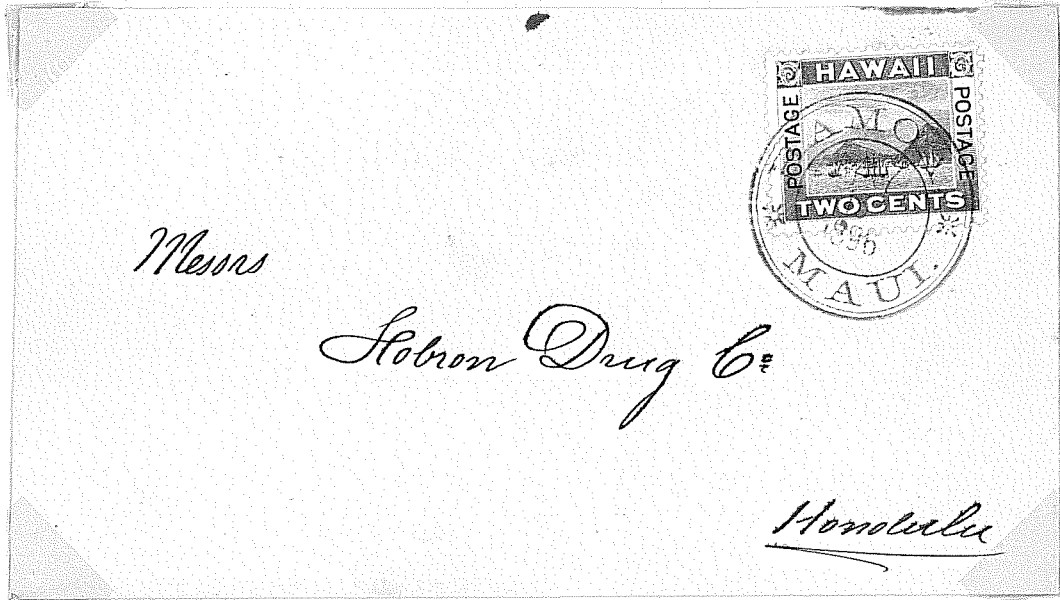 HAWAII
POSTAGE
POSTAGE
TWO CENTS
1896
MAUI.
Messrs
Hobron Drug Co
Honolulu